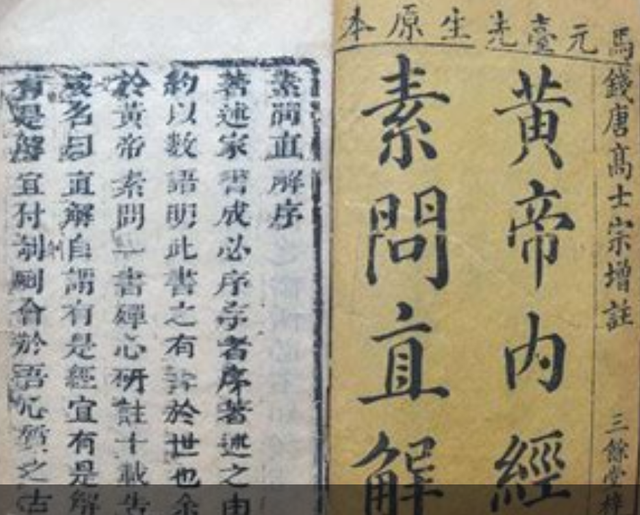 馬錢唐高士宗增註
三餘堂梓
元臺先生原本
黃帝內經
素問直解
素問直解序
著述家書成必序序者序著述之由
約以數語明此書之有 於世也余
於黃帝素問一書殫心研註十載告
名曰直解自謂有是經宜有是解
有是解宜付剞劂會於吾心質之古